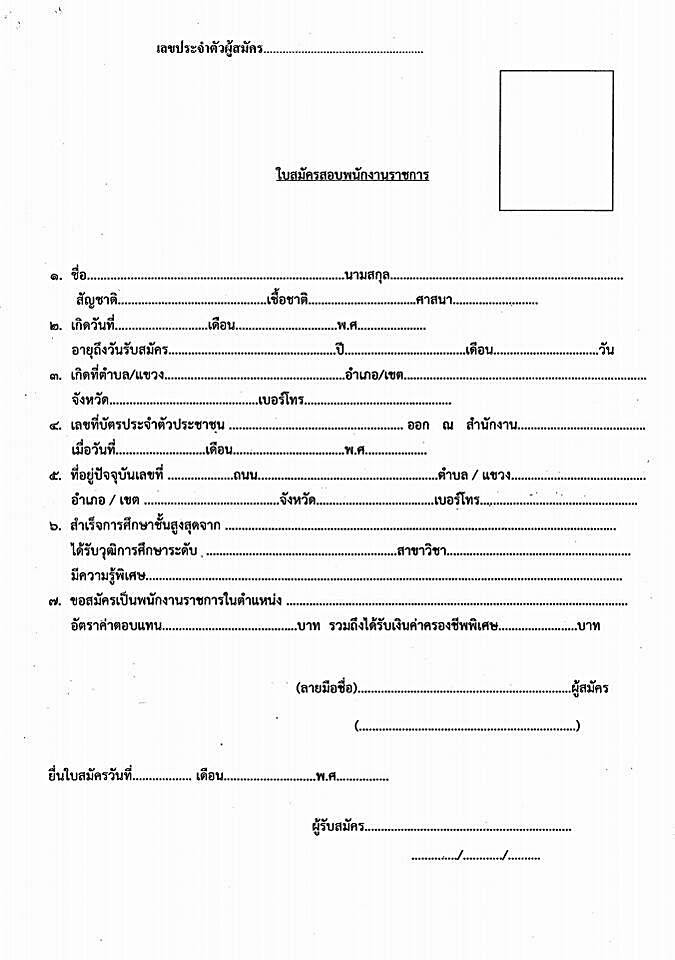 เลขประจำตัวผู้สมัคร..................................................
ใบสมัครสอบพนักงานราชการ
๑. ชื่อ..............................................................................นามสกุล.......................................................................
สัญชาติ..............................................เชื้อชาติ.................................ศาสนา..........................
๒. เกิดวันที่............................เดือน...............................พ.ศ.....................
อายุถึงวันรับสมัคร...................................................ปี.....................................เดือน................................วัน
๓. เกิดที่ตำบล/แขวง.......................................................อำเภอ/เขต..........................................................................
จังหวัด..............................................เบอร์โทร.............................................
๔. เลขที่บัตรประจำตัวประชาชน ..................................................... ออก ณ สำนักงาน.......................................
เมื่อวันที่...........................เดือน..................................พ.ศ...................
๕. ที่อยู่ปัจจุบันเลขที่ ....................ถนน.......................................................ตำบล / แขวง.........................................
อำเภอ / เขต .........................................จังหวัด....................................เบอร์โทร................................................
๖. สำเร็จการศึกษาชั้นสูงสุดจาก .......................................................................................................................
ได้รับวุฒิการศึกษาระดับ ..........................................................สาขาวิชา........................................................
มีความรู้พิเศษ.................................................................................................................................................
๗. ขอสมัครเป็นพนักงานราชการในตำแหน่ง ........................................................................................................
อัตราค่าตอบแทน.........................................บาท รวมถึงได้รับเงินค่าครองชีพพิเศษ........................บาท
(ลายมือชื่อ).................................................................ผู้สมัคร
(..................................................................)
ยื่นใบสมัครวันที่.................. เดือน............................พ.ศ................
ผู้รับสมัคร...............................................................
............../............/..........